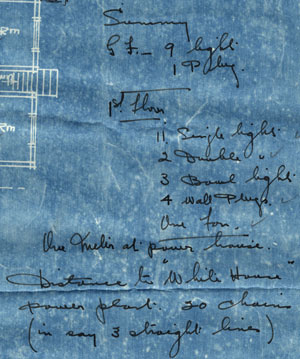 Summary
G.F. — 9 light
1 Plug.
1st floor
11 Single lights
2 Double "
3 Bowl lights
4 Wall Plugs.
One Fan.
One Meter at power house.
Distance to "White House"
power plant. 30 chains
(in say 3 straight lines)